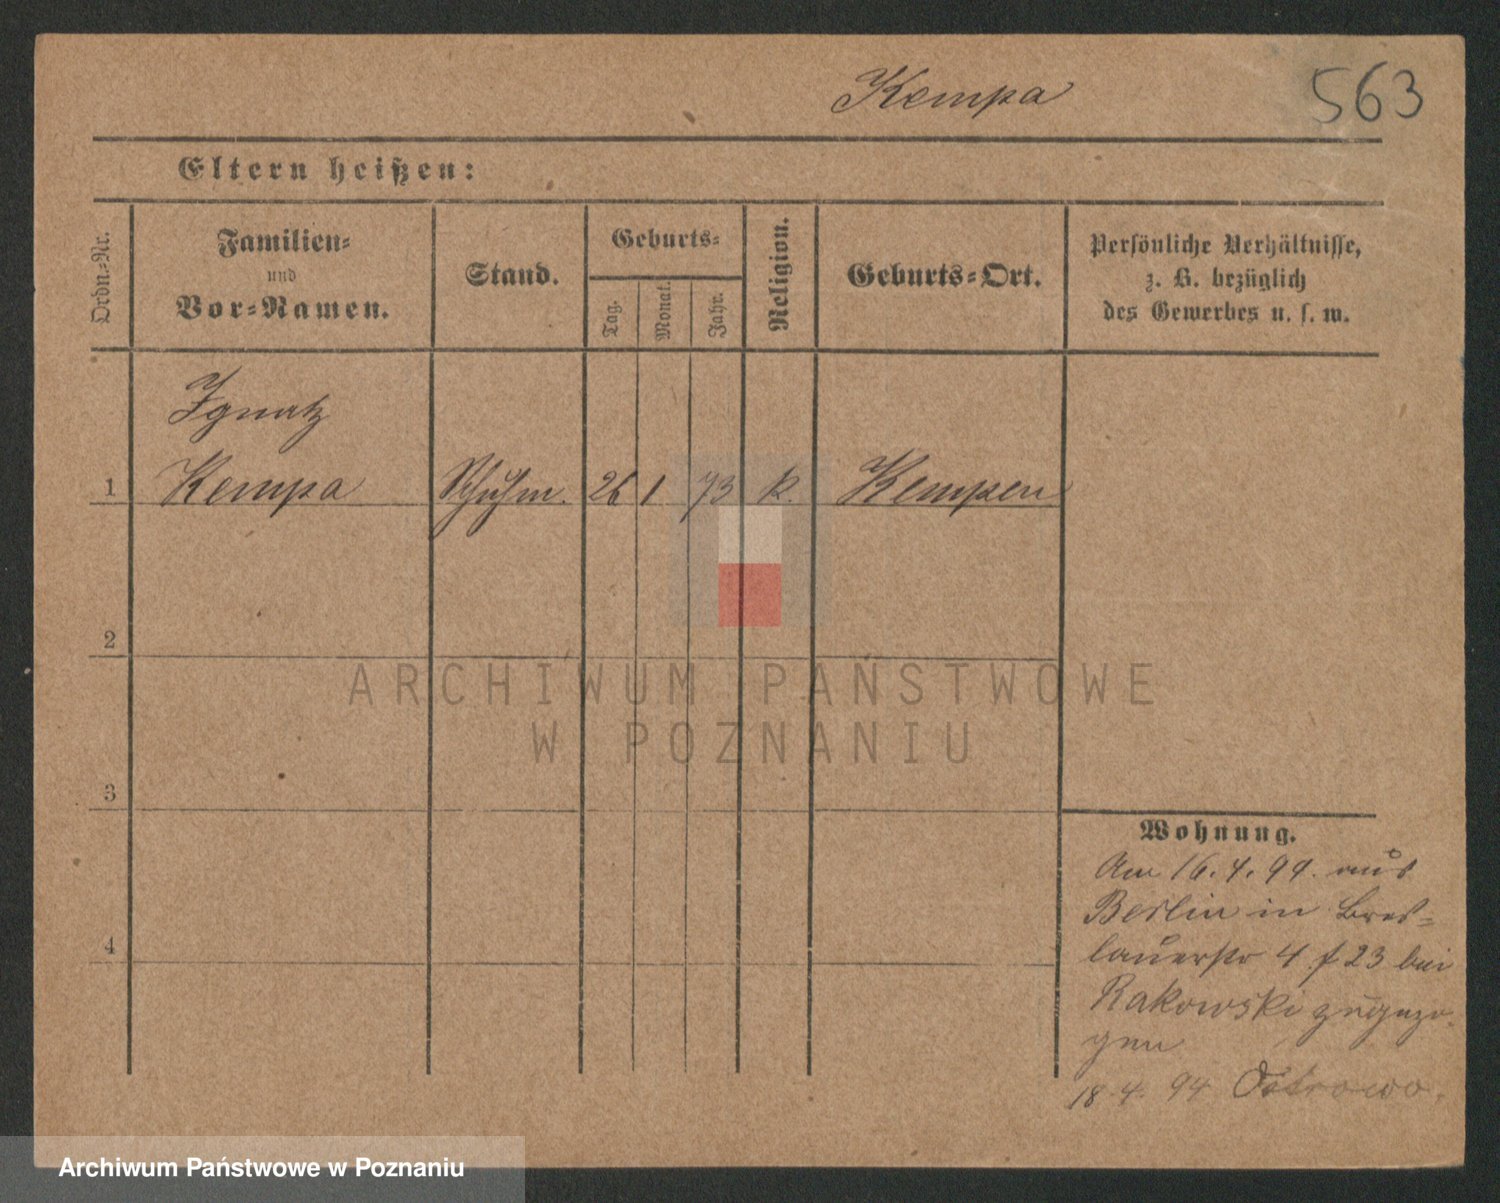 Kempa
563
Eltern heißen:
Ordn.-Nr.
Familien-
und
Vor-Namen.
Stand.
Geburts-
Tag.
Monat.
Jahr.
Religion.
Geburts-Ort.
Persönliche Verhältnisse,
z. B. bezüglich
des Gewerbes u. s. w.
Ignatz
1 Kempa Schuhm. 26 1 73 k. Kempen
2
ARCHIWUM PAŃSTWOWE
W POZNANIU
3
Wohnung.
Am 16.4.94. aus
Berlin in Bres-
4
lauerstr 4 f 23 bei
Rakowski zugezo-
gen
18.4. 94 Ostrowo.
Archiwum Państwowe w Poznaniu